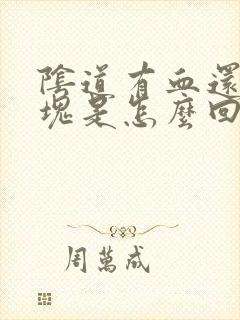 陰道有血還
塊是怎麼回
周萬成